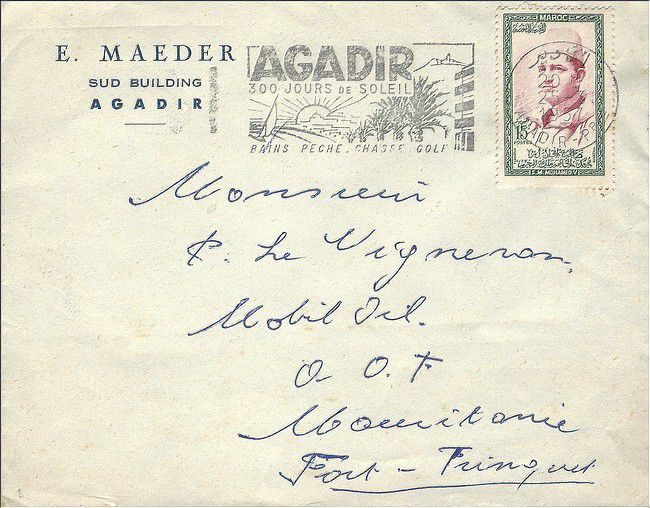 E. MAEDER
SUD BUILDING
AGADIR
AGADIR
300 JOURS DE SOLEIL
BAINS. PECHE. CHASSE. GOLF
MAROC
15
POSTES
S.M. MOHAMED V
Monsieur
P. Le Vigneron.
Mobil Oil.
A. O. F
Mauritanie
Fort - Trinquet